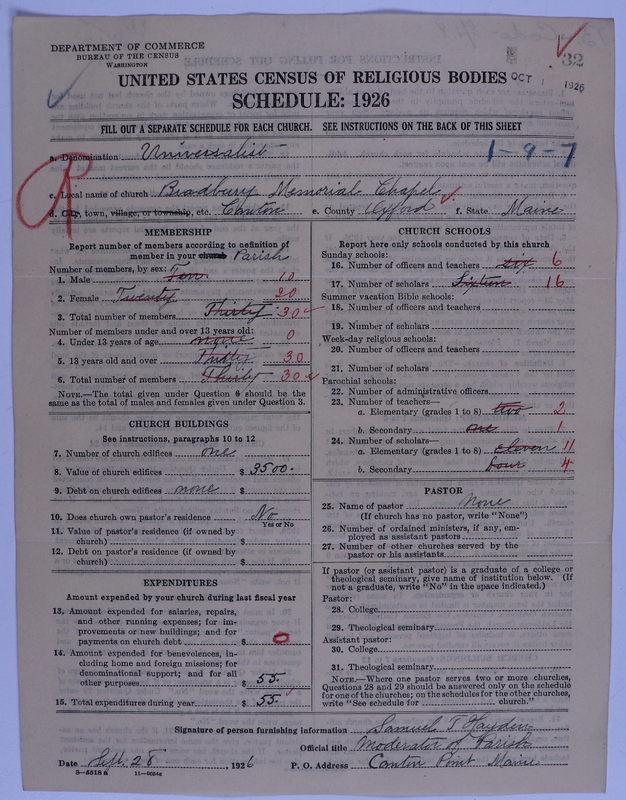 DEPARTMENT OF COMMERCE
BUREAU OF THE CENSUS
WASHINGTON
32
UNITED STATES CENSUS OF RELIGIOUS BODIES
OCT 1 1926
SCHEDULE: 1926
FILL OUT A SEPARATE SCHEDULE FOR EACH CHURCH. SEE INSTRUCTIONS ON THE BACK OF THIS SHEET
a. Denomination Universalist
1-9-7
c. Local name of church Bradbury Memorial Chapel
d. City, town, village, or township, etc. Canton e. County Oxford f. State Maine
MEMBERSHIP
Report number of members according to definition of
member in your church Parish
Number of members, by sex:
1. Male Ten 10
2. Female Twenty 20
3. Total number of members Thirty 30
Number of members under and over 13 years old:
4. Under 13 years of age none 0
5. 13 years old and over Thirty 30
6. Total number of members Thirty 30
NOTE.—The total given under Question 6 should be the
same as the total of males and females given under Question 3.
CHURCH BUILDINGS
See instructions, paragraphs 10 to 12
7. Number of church edifices one
8. Value of church edifices $ 3500.
9. Debt on church edifices none $
10. Does church own pastor's residence No
Yes or No
11. Value of pastor's residence (if owned by
church) $
12. Debt on pastor's residence (if owned by
church) $
EXPENDITURES
Amount expended by your church during last fiscal year
13. Amount expended for salaries, repairs,
and other running expenses; for im-
provements or new buildings; and for
payments on church debt $ 0
14. Amount expended for benevolences, in-
cluding home and foreign missions; for
denominational support; and for all
other purposes $ 55.
15. Total expenditures during year $ 55.
CHURCH SCHOOLS
Report here only schools conducted by this church
Sunday schools:
16. Number of officers and teachers six 6
17. Number of scholars Sixteen 16
Summer vacation Bible schools:
18. Number of officers and teachers
19. Number of scholars
Week-day religious schools:
20. Number of officers and teachers
21. Number of scholars
Parochial schools:
22. Number of administrative officers
23. Number of teachers—
a. Elementary (grades 1 to 8) two 2
b. Secondary one 1
24. Number of scholars—
a. Elementary (grades 1 to 8) eleven 11
b. Secondary four 4
PASTOR
25. Name of pastor None
(If church has no pastor, write "None")
26. Number of ordained ministers, if any, em-
ployed as assistant pastors
27. Number of other churches served by the
pastor or his assistants
If pastor (or assistant pastor) is a graduate of a college or
theological seminary, give name of institution below. (If
not a graduate, write "No" in the space indicated.)
Pastor:
28. College
29. Theological seminary
Assistant pastor:
30. College
31. Theological seminary
NOTE.—Where one pastor serves two or more churches,
Questions 28 and 29 should be answered only on the schedule
for one of the churches; on the schedules for the other churches,
write "See schedule for church."
Signature of person furnishing information Samuel T Hayden
Official title Moderator of Parish
Date Sept. 28, 1926 P. O. Address Canton Point Maine
8—5518 a 11—9054a